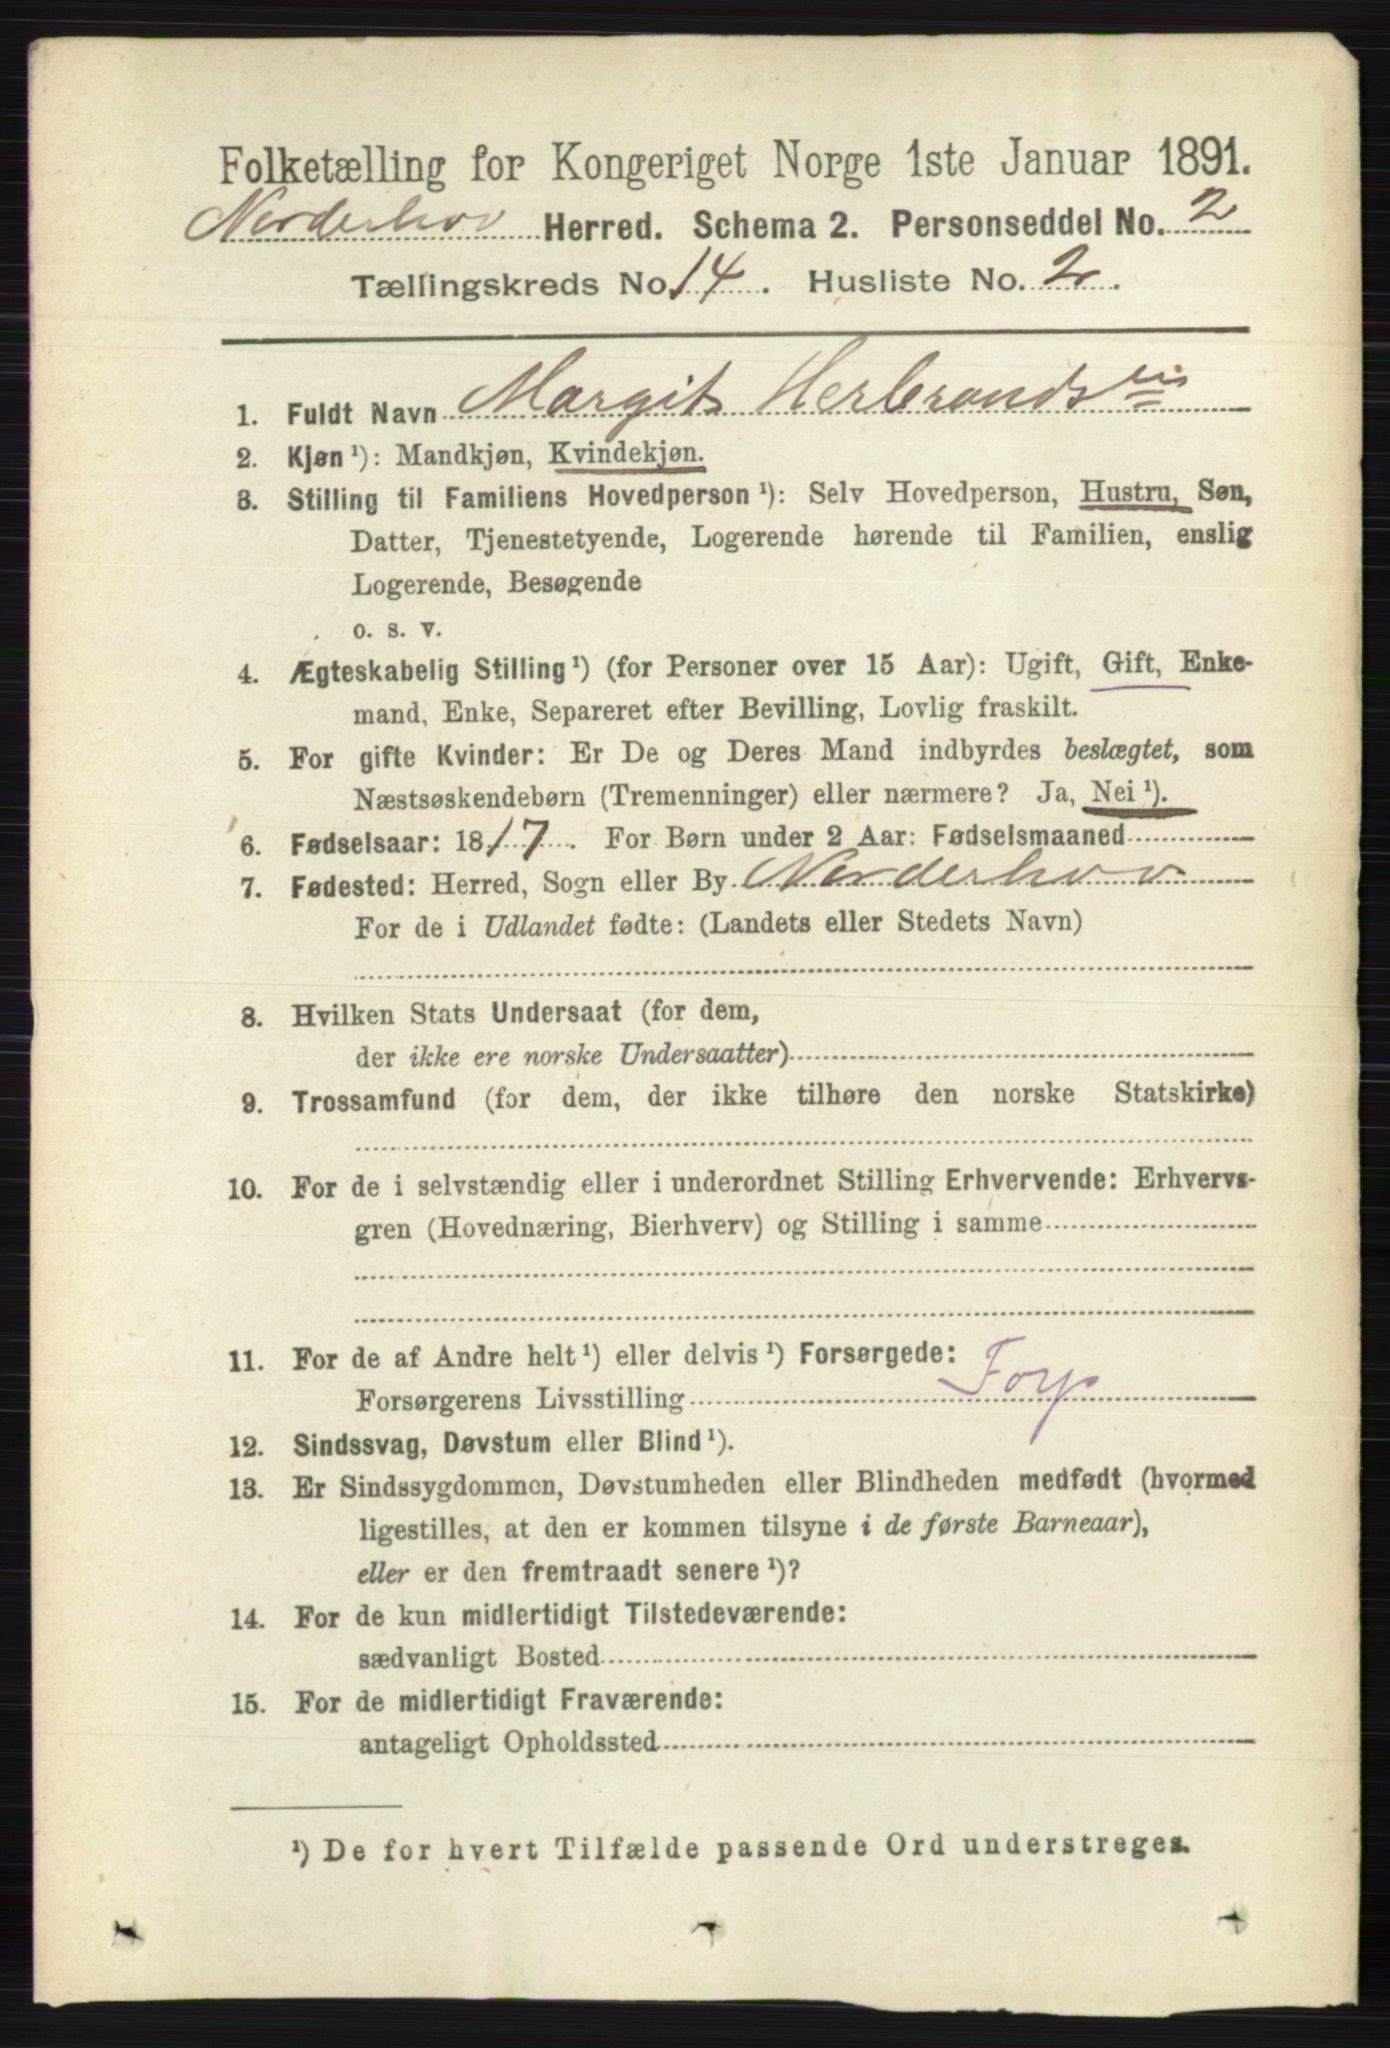 Folketælling for Kongeriget Norge 1ste Januar 1891.
Norderhov Herred. Schema 2. Personseddel No. 2
Tællingskreds No. 14. Husliste No. 2.
1. Fuldt Navn Margit Herbrandsen
2. Kjøn ¹): Mandkjøn, Kvindekjøn.
3. Stilling til Familiens Hovedperson ¹): Selv Hovedperson, Hustru, Søn,
Datter, Tjenestetyende, Logerende hørende til Familien, enslig
Logerende, Besøgende
o. s. v.
4. Ægteskabelig Stilling ¹) (for Personer over 15 Aar): Ugift, Gift, Enke-
mand, Enke, Separeret efter Bevilling, Lovlig fraskilt.
5. For gifte Kvinder: Er De og Deres Mand indbyrdes beslægtet, som
Næstsøskendebørn (Tremenninger) eller nærmere? Ja, Nei ¹).
6. Fødselsaar: 1817. For Børn under 2 Aar: Fødselsmaaned
7. Fødested: Herred, Sogn eller By Norderhov
For de i Udlandet fødte: (Landets eller Stedets Navn)
8. Hvilken Stats Undersaat (for dem,
der ikke ere norske Undersaatter)
9. Trossamfund (for dem, der ikke tilhøre den norske Statskirke)
10. For de i selvstændig eller i underordnet Stilling Erhvervende: Erhvervs-
gren (Hovednæring, Bierhverv) og Stilling i samme
11. For de af Andre helt ¹) eller delvis ¹) Forsørgede:
Forsørgerens Livsstilling
12. Sindssvag, Døvstum eller Blind ¹).
13. Er Sindssygdommen, Døvstumheden eller Blindheden medfødt (hvormed
ligestilles, at den er kommen tilsyne i de første Barneaar),
eller er den fremtraadt senere ¹)?
14. For de kun midlertidigt Tilstedeværende:
sædvanligt Bosted
15. For de midlertidigt Fraværende:
antageligt Opholdssted
¹) De for hvert Tilfælde passende Ord understreges.